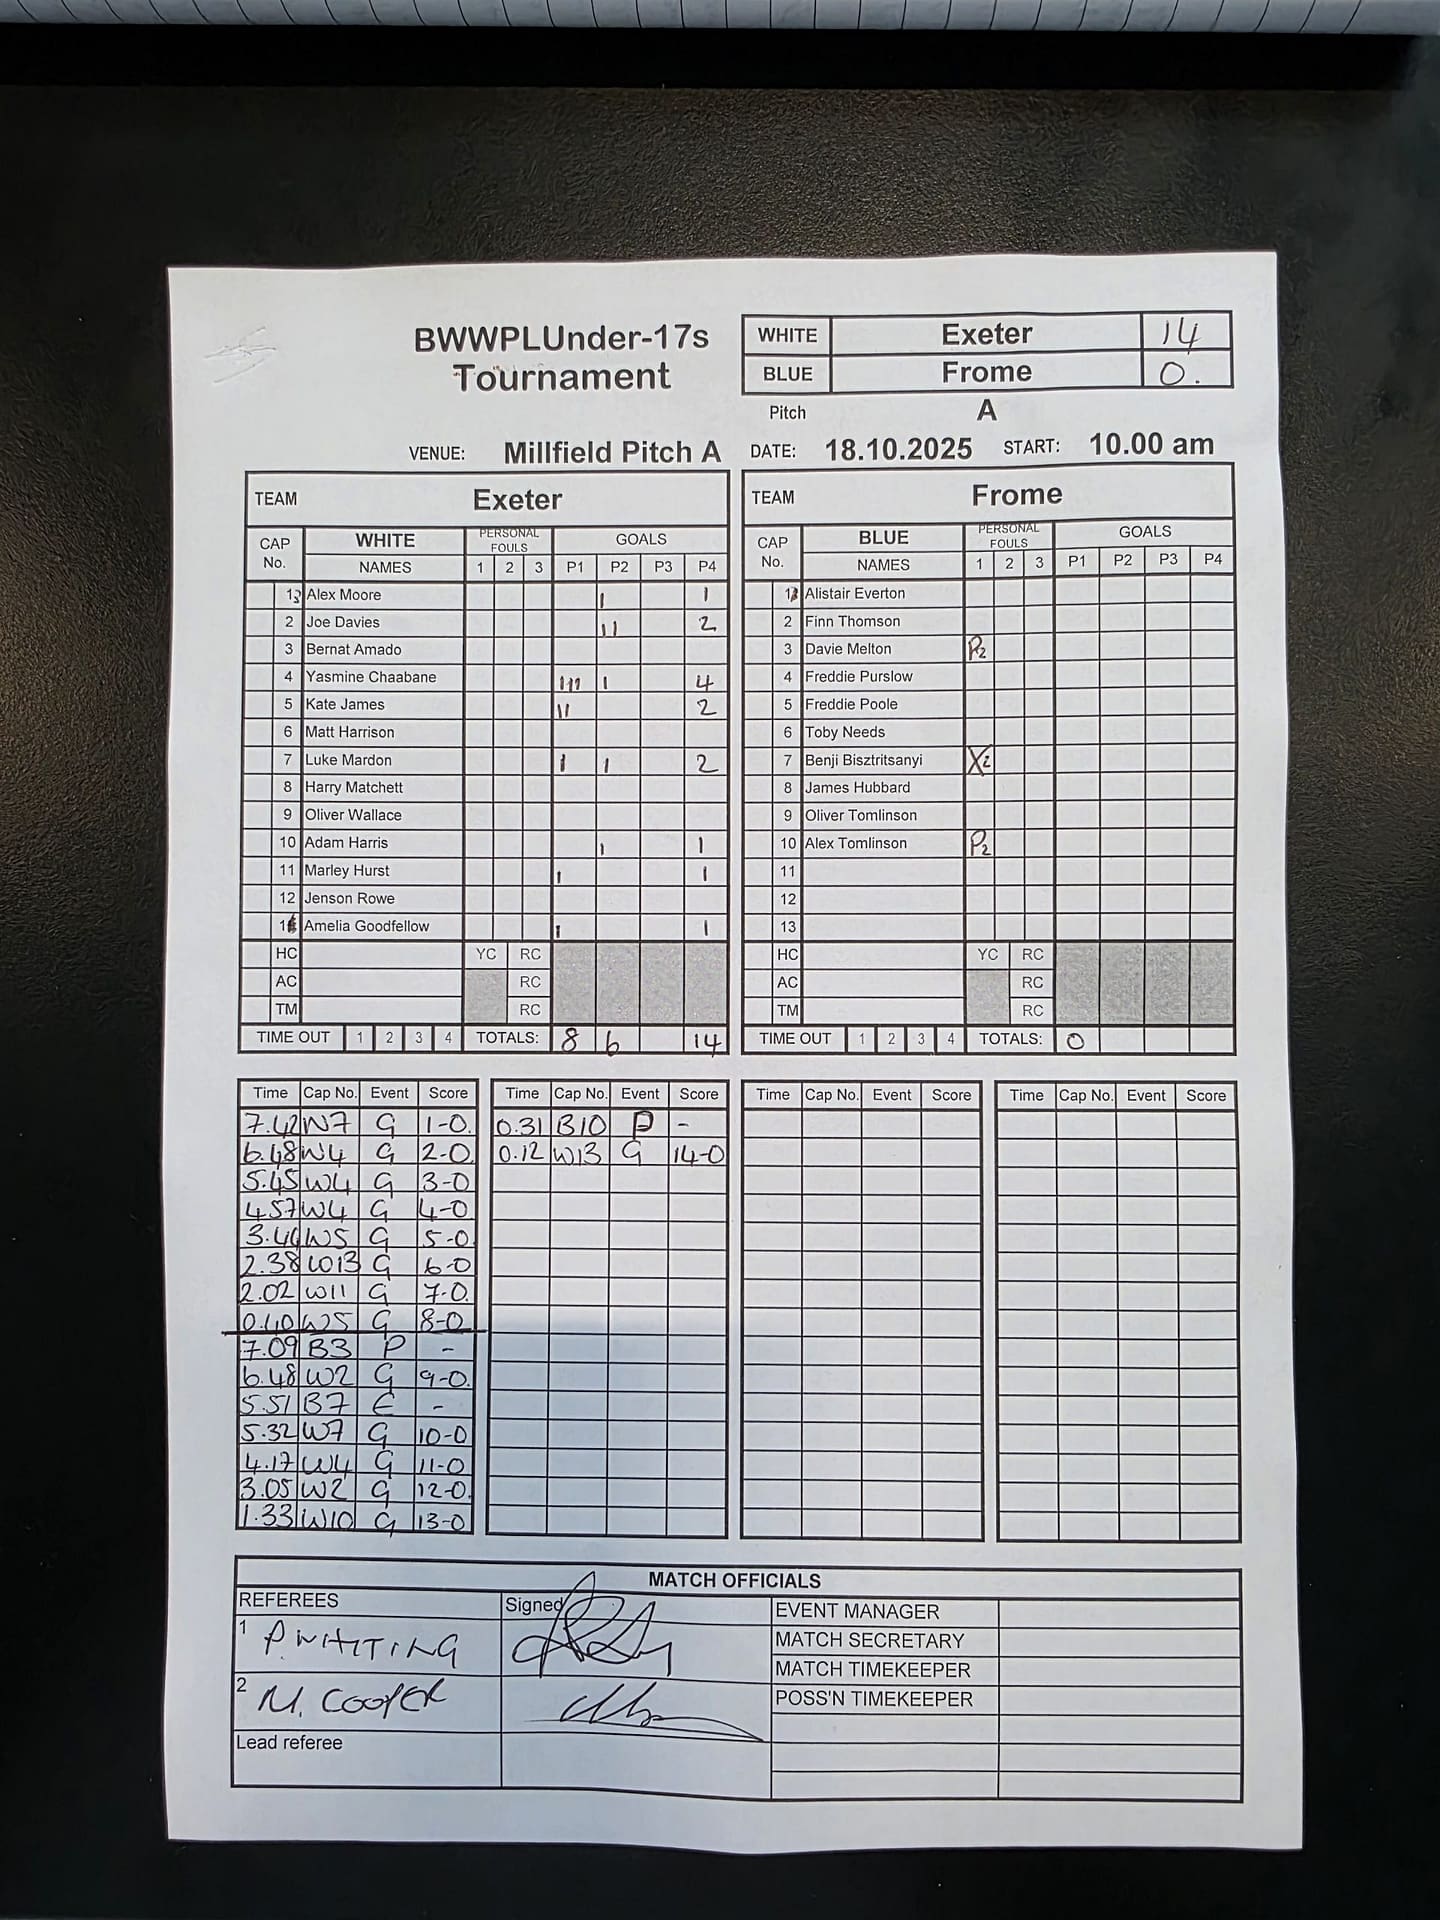 BWWPLUnder-17s
Tournament
WHITE Exeter 14
BLUE Frome 0.
Pitch A
VENUE: Millfield Pitch A DATE: 18.10.2025 START: 10.00 am
TEAM Exeter
CAP No. WHITE NAMES PERSONAL FOULS 1 2 3 GOALS P1 P2 P3 P4
13 Alex Moore I 1
2 Joe Davies II 2
3 Bernat Amado
4 Yasmine Chaabane III I 4
5 Kate James II 2
6 Matt Harrison
7 Luke Mardon I I 2
8 Harry Matchett
9 Oliver Wallace
10 Adam Harris I 1
11 Marley Hurst I 1
12 Jenson Rowe
1 Amelia Goodfellow I 1
HC YC RC
AC RC
TM RC
TIME OUT 1 2 3 4 TOTALS: 8 6 14
TEAM Frome
CAP No. BLUE NAMES PERSONAL FOULS 1 2 3 GOALS P1 P2 P3 P4
1 Alistair Everton
2 Finn Thomson
3 Davie Melton P2
4 Freddie Purslow
5 Freddie Poole
6 Toby Needs
7 Benji Bisztritsanyi X2
8 James Hubbard
9 Oliver Tomlinson
10 Alex Tomlinson P2
11
12
13
HC YC RC
AC RC
TM RC
TIME OUT 1 2 3 4 TOTALS: 0
Time Cap No. Event Score
7.42 W7 G 1-0.
6.48 W4 G 2-0
5.45 W4 G 3-0
4.57 W4 G 4-0
W5 G 5-0
2.38 W13 G 6-0
2.02 W11 G 7-0.
0.40 W5 G 8-0
7.09 B3 P -
6.48 W2 G 9-0.
5.51 B7 E -
5.32 W7 G 10-0
4.17 W4 G 11-0
3.05 W2 G 12-0
1.33 W10 G 13-0
Time Cap No. Event Score
0.31 B10 P -
0.12 W13 G 14-0
Time Cap No. Event Score
Time Cap No. Event Score
MATCH OFFICIALS
REFEREES Signed
1 P.WHITING
2 M. COOPER
Lead referee
EVENT MANAGER
MATCH SECRETARY
MATCH TIMEKEEPER
POSS'N TIMEKEEPER